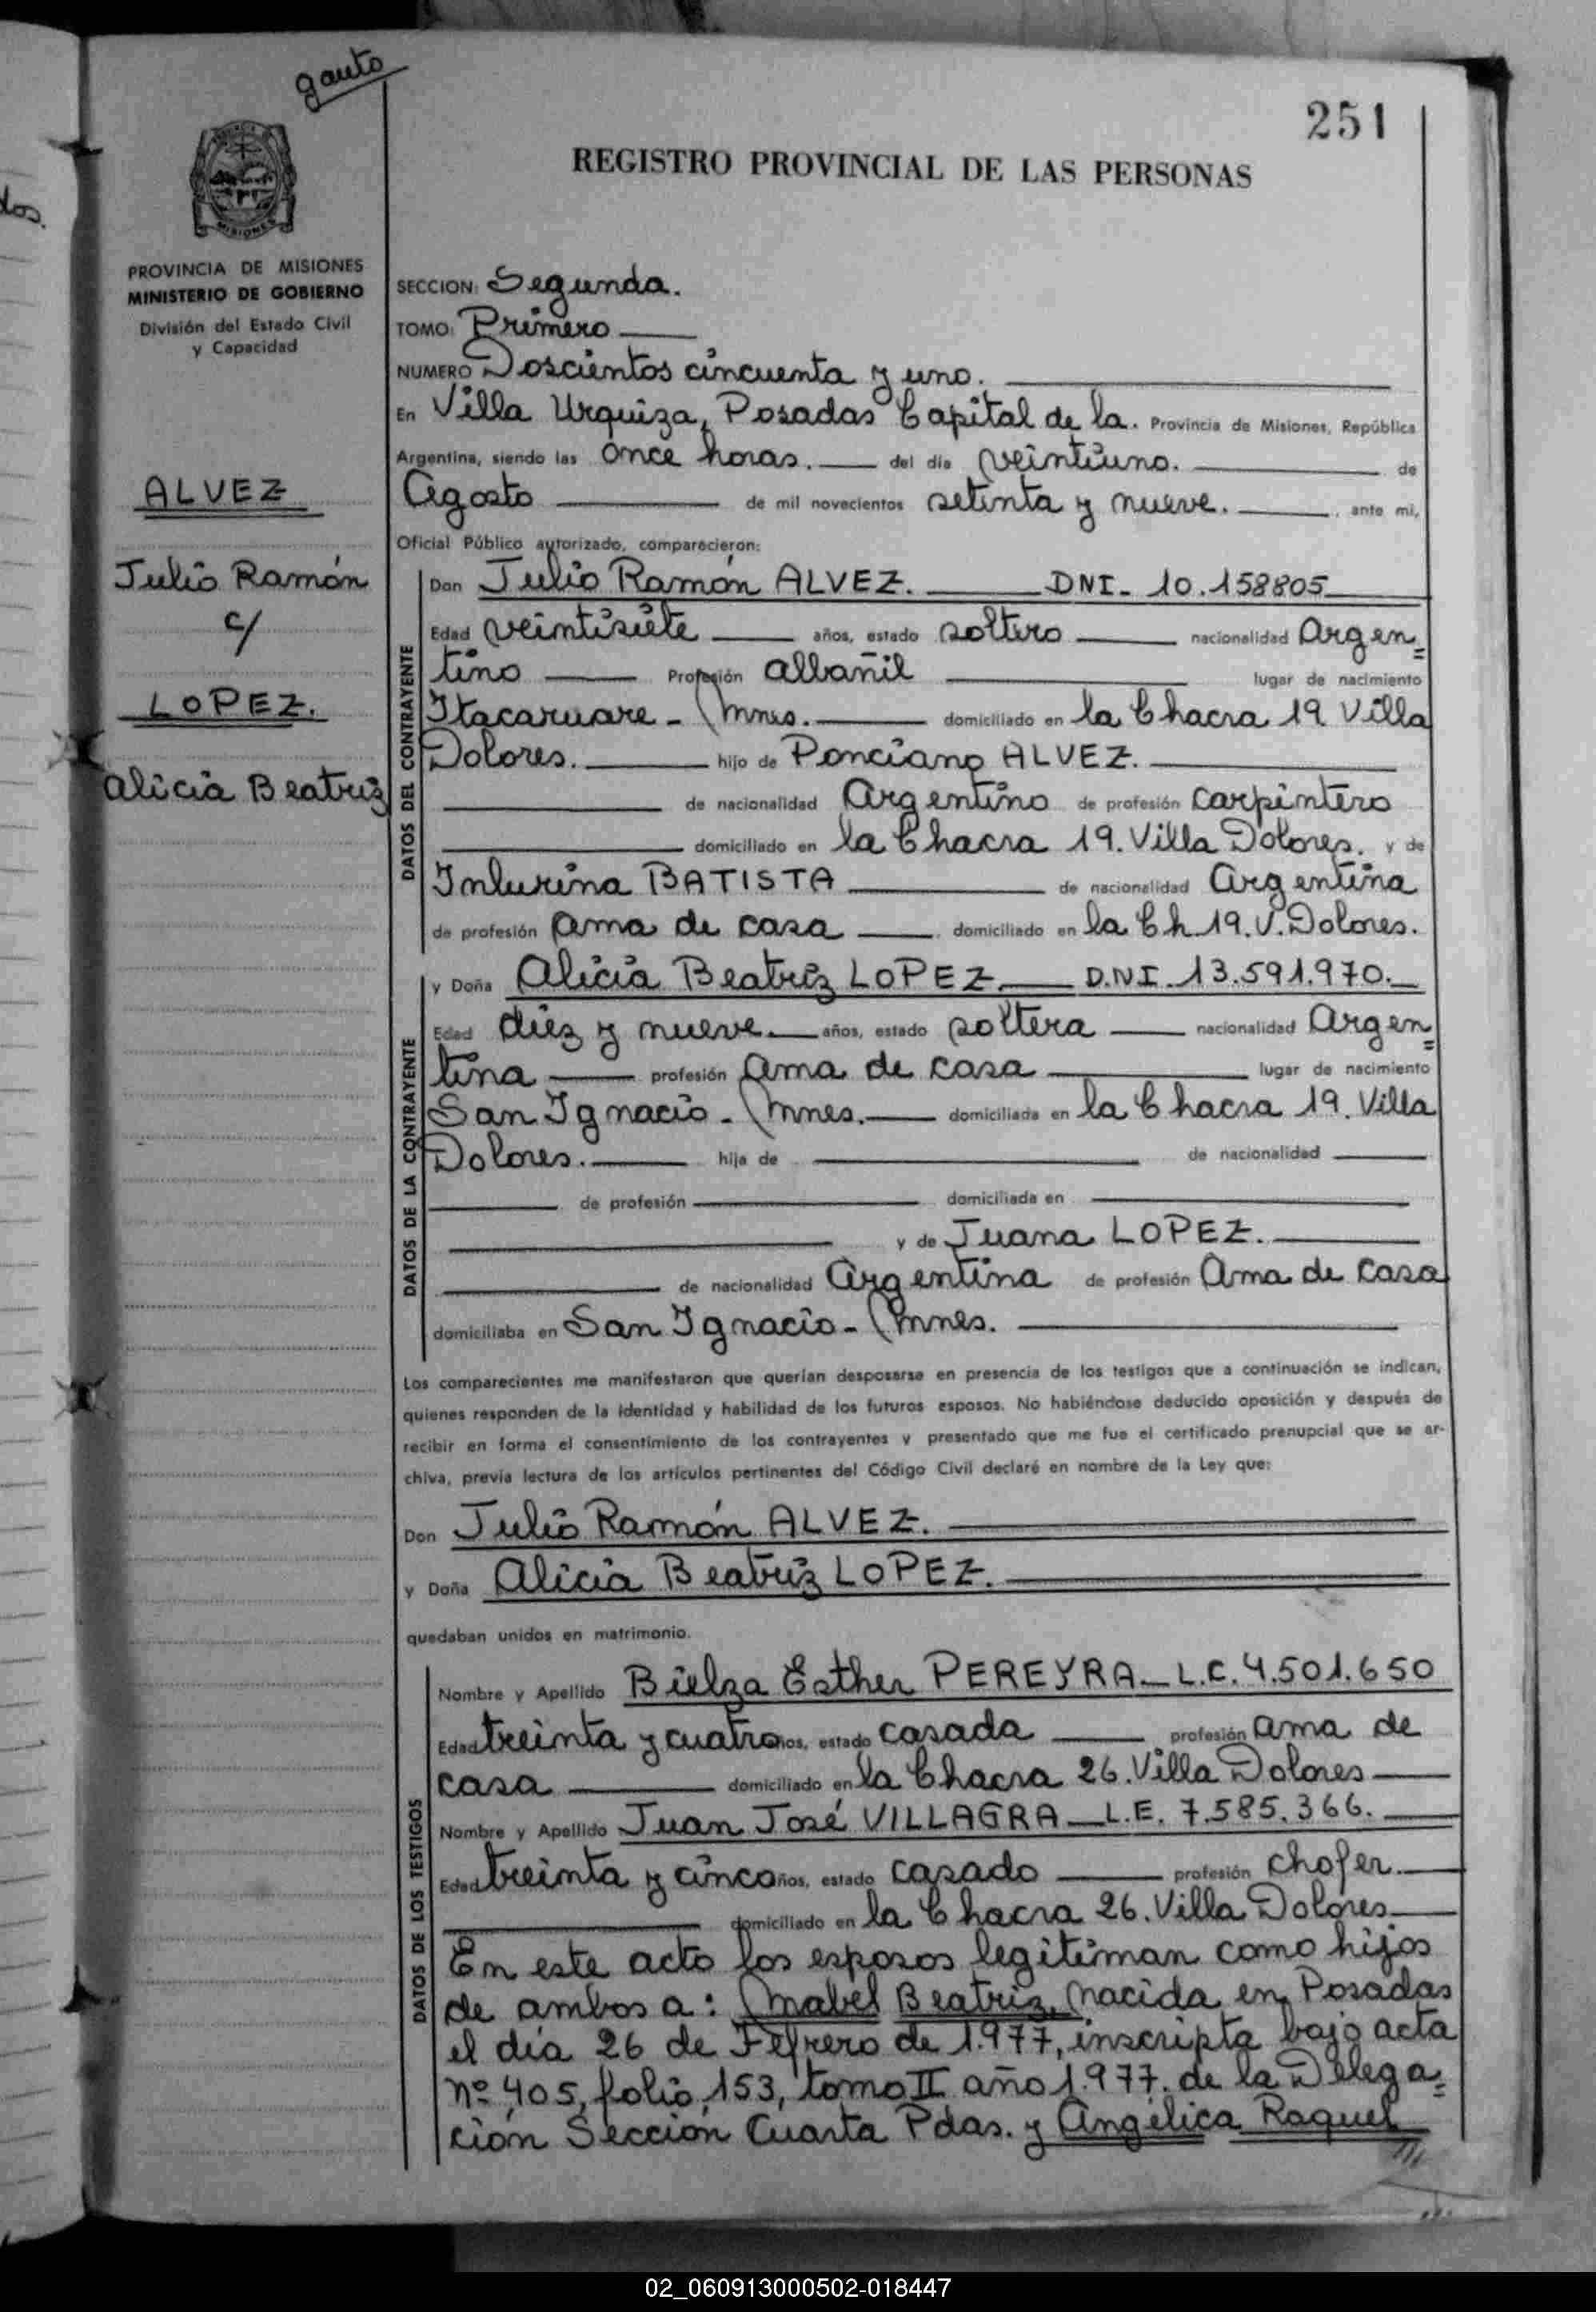 gauto
251
REGISTRO PROVINCIAL DE LAS PERSONAS
MISIONES
PROVINCIA DE MISIONES
MINISTERIO DE GOBIERNO
División del Estado Civil
y Capacidad
ALVEZ
Julio Ramón
c/
LOPEZ.
Alicia Beatriz
SECCION: Segunda.
TOMO: Primero
NUMERO Doscientos cincuenta y uno.
En Villa Urquiza, Posadas Capital de la. Provincia de Misiones, República
Argentina, siendo las once horas. del día veintiuno. de
Agosto de mil novecientos setenta y nueve. , ante mi,
Oficial Público autorizado, comparecieron:
DATOS DEL CONTRAYENTE
Don Julio Ramón ALVEZ. DNI- 10.158805
Edad veintisiete años, estado soltero nacionalidad Argen=
tino Profesión albañil lugar de nacimiento
Itacaruare - Mnes. domiciliado en la Chacra 19 Villa
Dolores. hijo de Ponciano ALVEZ.
de nacionalidad Argentino de profesión carpintero
domiciliado en la Chacra 19. Villa Dolores. y de
BATISTA de nacionalidad Argentina
de profesión ama de casa domiciliado en la Ch 19. V. Dolores.
DATOS DE LA CONTRAYENTE
y Doña Alicia Beatriz LOPEZ. D.NI. 13.591.970.
Edad diez y nueve. años, estado soltera nacionalidad Argen=
tina profesión ama de casa lugar de nacimiento
San Ignacio - Mnes. domiciliada en la Chacra 19. Villa
Dolores. hija de de nacionalidad
de profesión domiciliada en
y de Juana LOPEZ.
de nacionalidad Argentina de profesión Ama de casa
domiciliaba en San Ignacio - Mnes.
Los comparecientes me manifestaron que querían desposarse en presencia de los testigos que a continuación se indican,
quienes responden de la identidad y habilidad de los futuros esposos. No habiéndose deducido oposición y después de
recibir en forma el consentimiento de los contrayentes y presentado que me fue el certificado prenupcial que se ar-
chiva, previa lectura de los artículos pertinentes del Código Civil declaré en nombre de la Ley que:
Don Julio Ramón ALVEZ.
y Doña Alicia Beatriz LOPEZ.
quedaban unidos en matrimonio.
DATOS DE LOS TESTIGOS
Nombre y Apellido Bielza Esther PEREYRA L.C. 4.501.650
Edad treinta y cuatro años, estado casada profesión ama de
casa domiciliado en la Chacra 26. Villa Dolores
Nombre y Apellido Juan José VILLAGRA L.E. 7.585.366.
Edad treinta y cinco años, estado casado profesión chofer.
domiciliado en la Chacra 26. Villa Dolores
En este acto los esposos legitiman como hijos
de ambos a: Mabel Beatriz, nacida en Posadas
el día 26 de Febrero de 1.977, inscripta bajo acta
nº 405, folio 153, tomo II año 1.977. de la Delega=
ción Sección Cuarta Pdas. y Angélica Raquel
02_060913000502-018447